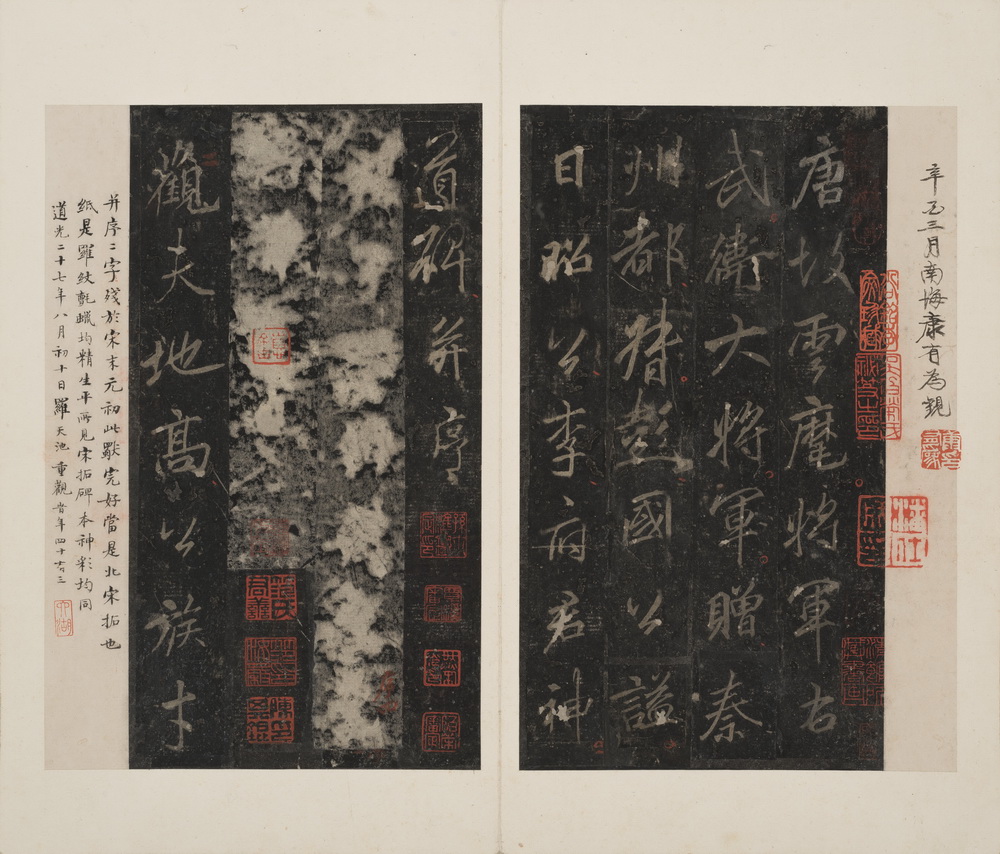 辛丑三月南海康有為觀
唐故雲麾將軍右
武衛大將軍贈秦
州都督彭國公謚
曰昭公李府君神
道碑并序
觀夫地高公族才
并序二字殘於宋末元初此獨完好當是北宋拓也
紙是羅紋氈蠟均精生平所見宋拓碑本神彩均同
道光二十七年八月初十日羅天池重觀昔年四十三